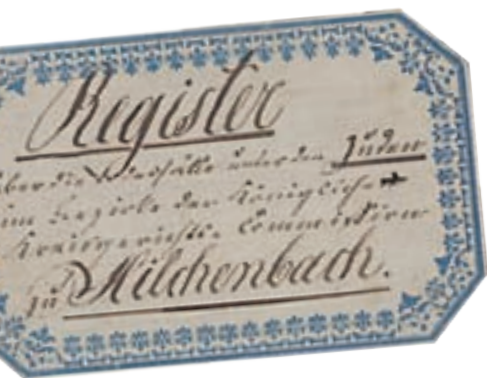 Register
über die Sterbfälle unter den Juden
im Bezirke der Königlichen
Kreisgerichts-Commission
zu Hilchenbach.